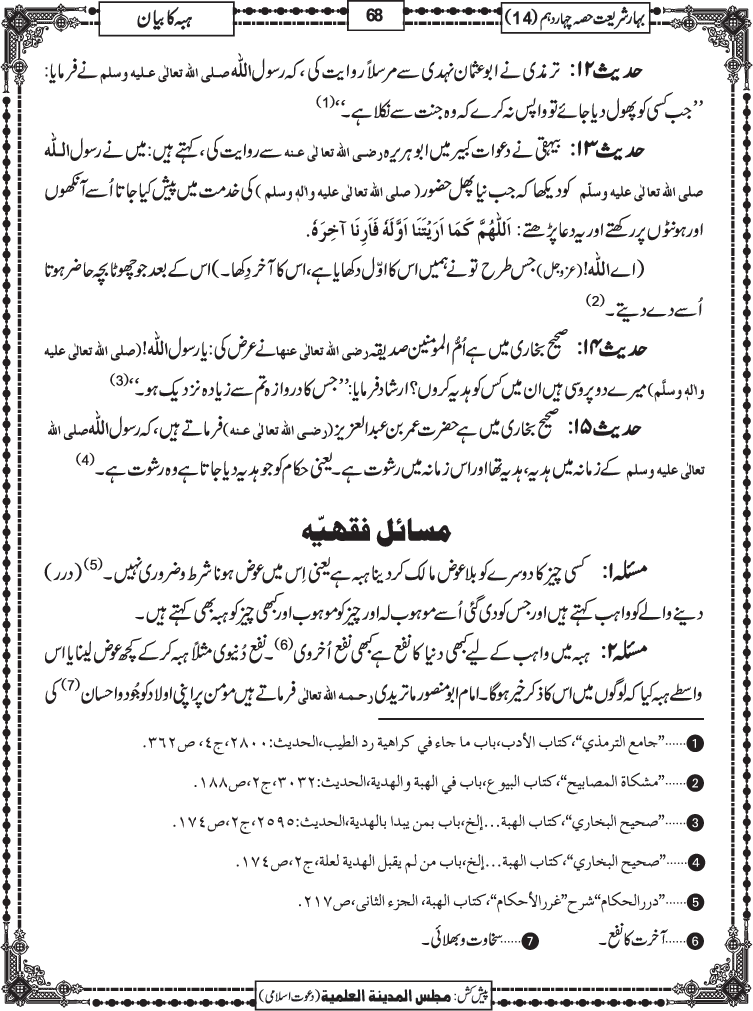 بہار شریعت حصہ چہاردہم (14)
68
ہبہ کا بیان
حدیث ۱۲: ترمذی نے ابو عثمان نہدی سے مرسلاً روایت کی، کہ رسول اللہ صلی اللہ تعالٰی علیہ وسلم نے فرمایا:
’’جب کسی کو پھول دیا جائے تو واپس نہ کرے کہ وہ جنت سے نکلا ہے۔‘‘(1)
حدیث ۱۳: بیہقی نے دعوات کبیر میں ابوہریرہ رضی اللہ تعالٰی عنہ سے روایت کی، کہتے ہیں: میں نے رسول اللہ
صلی اللہ تعالٰی علیہ وسلّم کو دیکھا کہ جب نیا پھل حضور (صلی اللہ تعالٰی علیہ والہٖ وسلم) کی خدمت میں پیش کیا جاتا اُسے آنکھوں
اور ہونٹوں پر رکھتے اور یہ دعا پڑھتے: اَللّٰھُمَّ کَمَا اَرَیْتَنَا اَوَّلَہٗ فَاَرِنَا آخِرَہٗ.
(اے اللہ! (عزوجل) جس طرح تو نے ہمیں اس کا اوّل دکھایا ہے، اس کا آخر دِکھا۔) اس کے بعد جو چھوٹا بچہ حاضر ہوتا
اُسے دے دیتے۔(2)
حدیث ۱۴: صحیح بخاری میں ہے اُمُّ المومنین صدیقہ رضی اللہ تعالٰی عنھا نے عرض کی: یارسول اللہ! (صلی اللہ تعالٰی علیہ
والہٖ وسلّم) میرے دو پروسی ہیں ان میں کس کو ہدیہ کروں؟ ارشاد فرمایا: ’’جس کا دروازہ تم سے زیادہ نزدیک ہو۔‘‘(3)
حدیث ۱۵: صحیح بخاری میں ہے حضرت عمر بن عبدالعزیز (رضی اللہ تعالٰی عنہ) فرماتے ہیں، کہ رسول اللہ صلی اللہ
تعالٰی علیہ وسلم کے زمانہ میں ہدیہ، ہدیہ تھا اور اس زمانہ میں رشوت ہے۔ یعنی حکام کو جو ہدیہ دیا جاتا ہے وہ رشوت ہے۔(4)
مسائل فقھیّہ
مسئلہ ۱: کسی چیز کا دوسرے کو بلا عوض مالک کر دینا ہبہ ہے یعنی اِس میں عوض ہونا شرط و ضروری نہیں۔(5) (درر)
دینے والے کو واہب کہتے ہیں اور جس کو دی گئی اُسے موہوب لہ اور چیز کو موہوب اور کبھی چیز کو ہبہ بھی کہتے ہیں۔
مسئلہ ۲: ہبہ میں واہب کے لیے کبھی دنیا کا نفع ہے کبھی نفع اُخروی(6)۔ نفع دُنیوی مثلاً ہبہ کر کے کچھ عوض لینا یا اس
واسطے ہبہ کیا کہ لوگوں میں اس کا ذکر خیر ہوگا۔ امام ابو منصور ماتریدی رحمہ اللہ تعالٰی فرماتے ہیں مؤمن پر اپنی اولاد کو جُود و احسان(7) کی
1 ......”جامع الترمذي“، كتاب الأدب، باب ما جاء في كراهية رد الطيب، الحديث: ٢٨٠٠، ج٤، ص٣٦٢.
2 ......”مشكاة المصابيح“، كتاب البيوع، باب في الهبة والهدية، الحديث: ٣٠٣٢، ج٢، ص١٨٨.
3 ......”صحيح البخاري“، كتاب الهبة...إلخ، باب بمن يبدا بالهدية، الحديث: ٢٥٩٥، ج٢، ص١٧٤.
4 ......”صحيح البخاري“، كتاب الهبة...إلخ، باب من لم يقبل الهدية لعلة، ج٢، ص١٧٤.
5 ......”دررالحكام“ شرح ”غررالأحكام“، كتاب الهبة، الجزء الثانی، ص٢١٧.
6 ......آخرت کا نفع۔ 7 ......سخاوت و بھلائی۔
پیش کش: مجلس المدینۃ العلمیۃ (دعوت اسلامی)